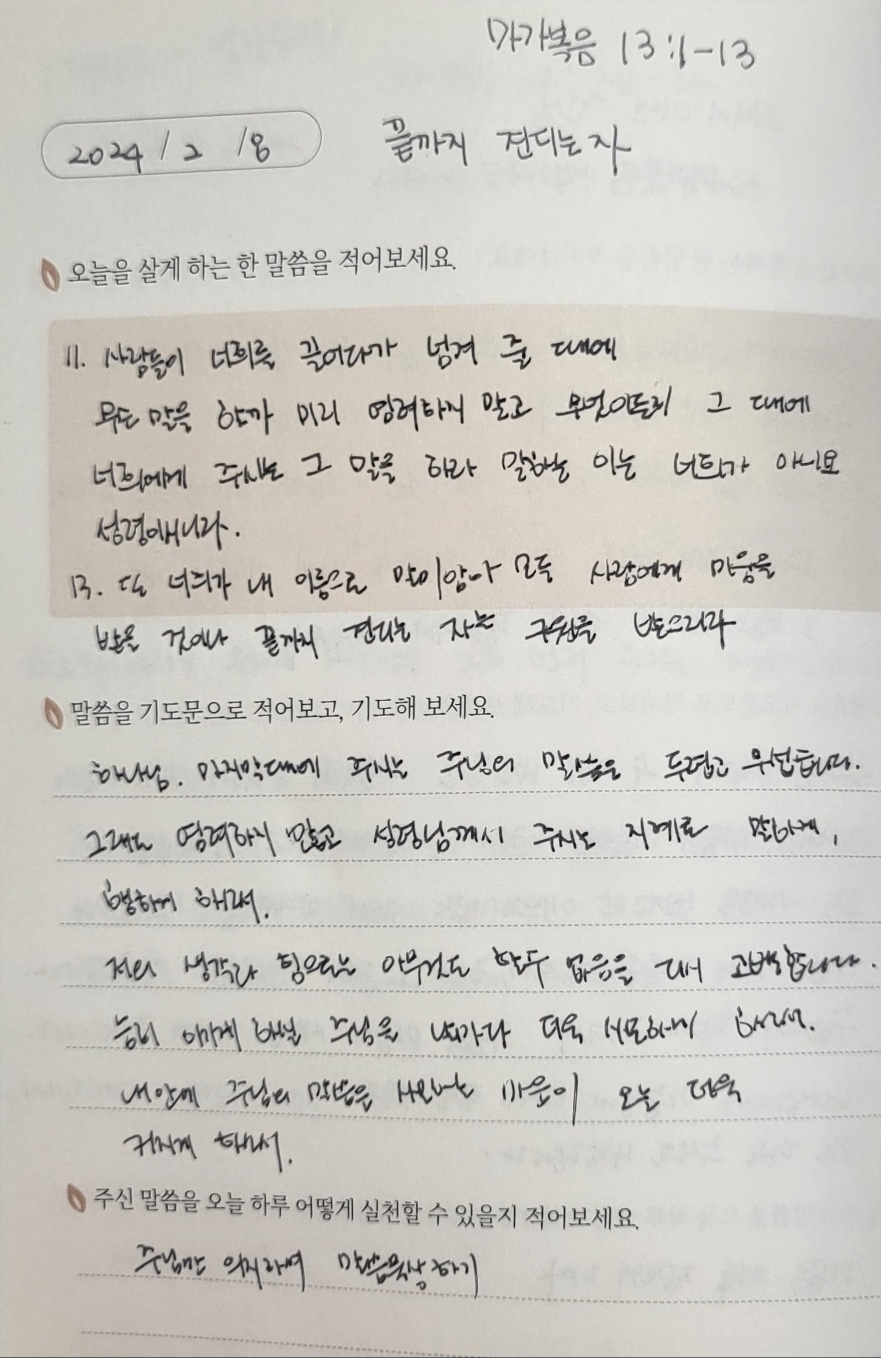 마가복음 13:1-13
2024 / 2 / 8 끝까지 견디는 자
오늘을 살게 하는 한 말씀을 적어보세요.
11. 사람들이 너희를 끌어다가 넘겨 줄 때에
무슨 말을 할까 미리 염려하지 말고 무엇이든지 그 때에
너희에게 주시는 그 말을 하라 말하는 이는 너희가 아니요
성령이시니라.
13. 또 너희가 내 이름으로 말미암아 모든 사람에게 미움을
받을 것이나 끝까지 견디는 자는 구원을 받으리라
말씀을 기도문으로 적어보고, 기도해 보세요.
하나님. 마지막때에 주시는 주님의 말씀을 두렵고
염려하지 말고 성령님께서 주시는 지혜로 말하게,
행하게 하소서.
저의 생각과 힘으로는 아무것도 할수 없음을 고백합니다.
능히 이기게 하실 주님을 더욱 사모하게 하소서.
내 안에 주님의 말씀을 마음이 오늘 더욱
커지게 하소서.
주신 말씀을 오늘 하루 어떻게 실천할 수 있을지 적어보세요.
주님만 의지하며 말씀묵상하기